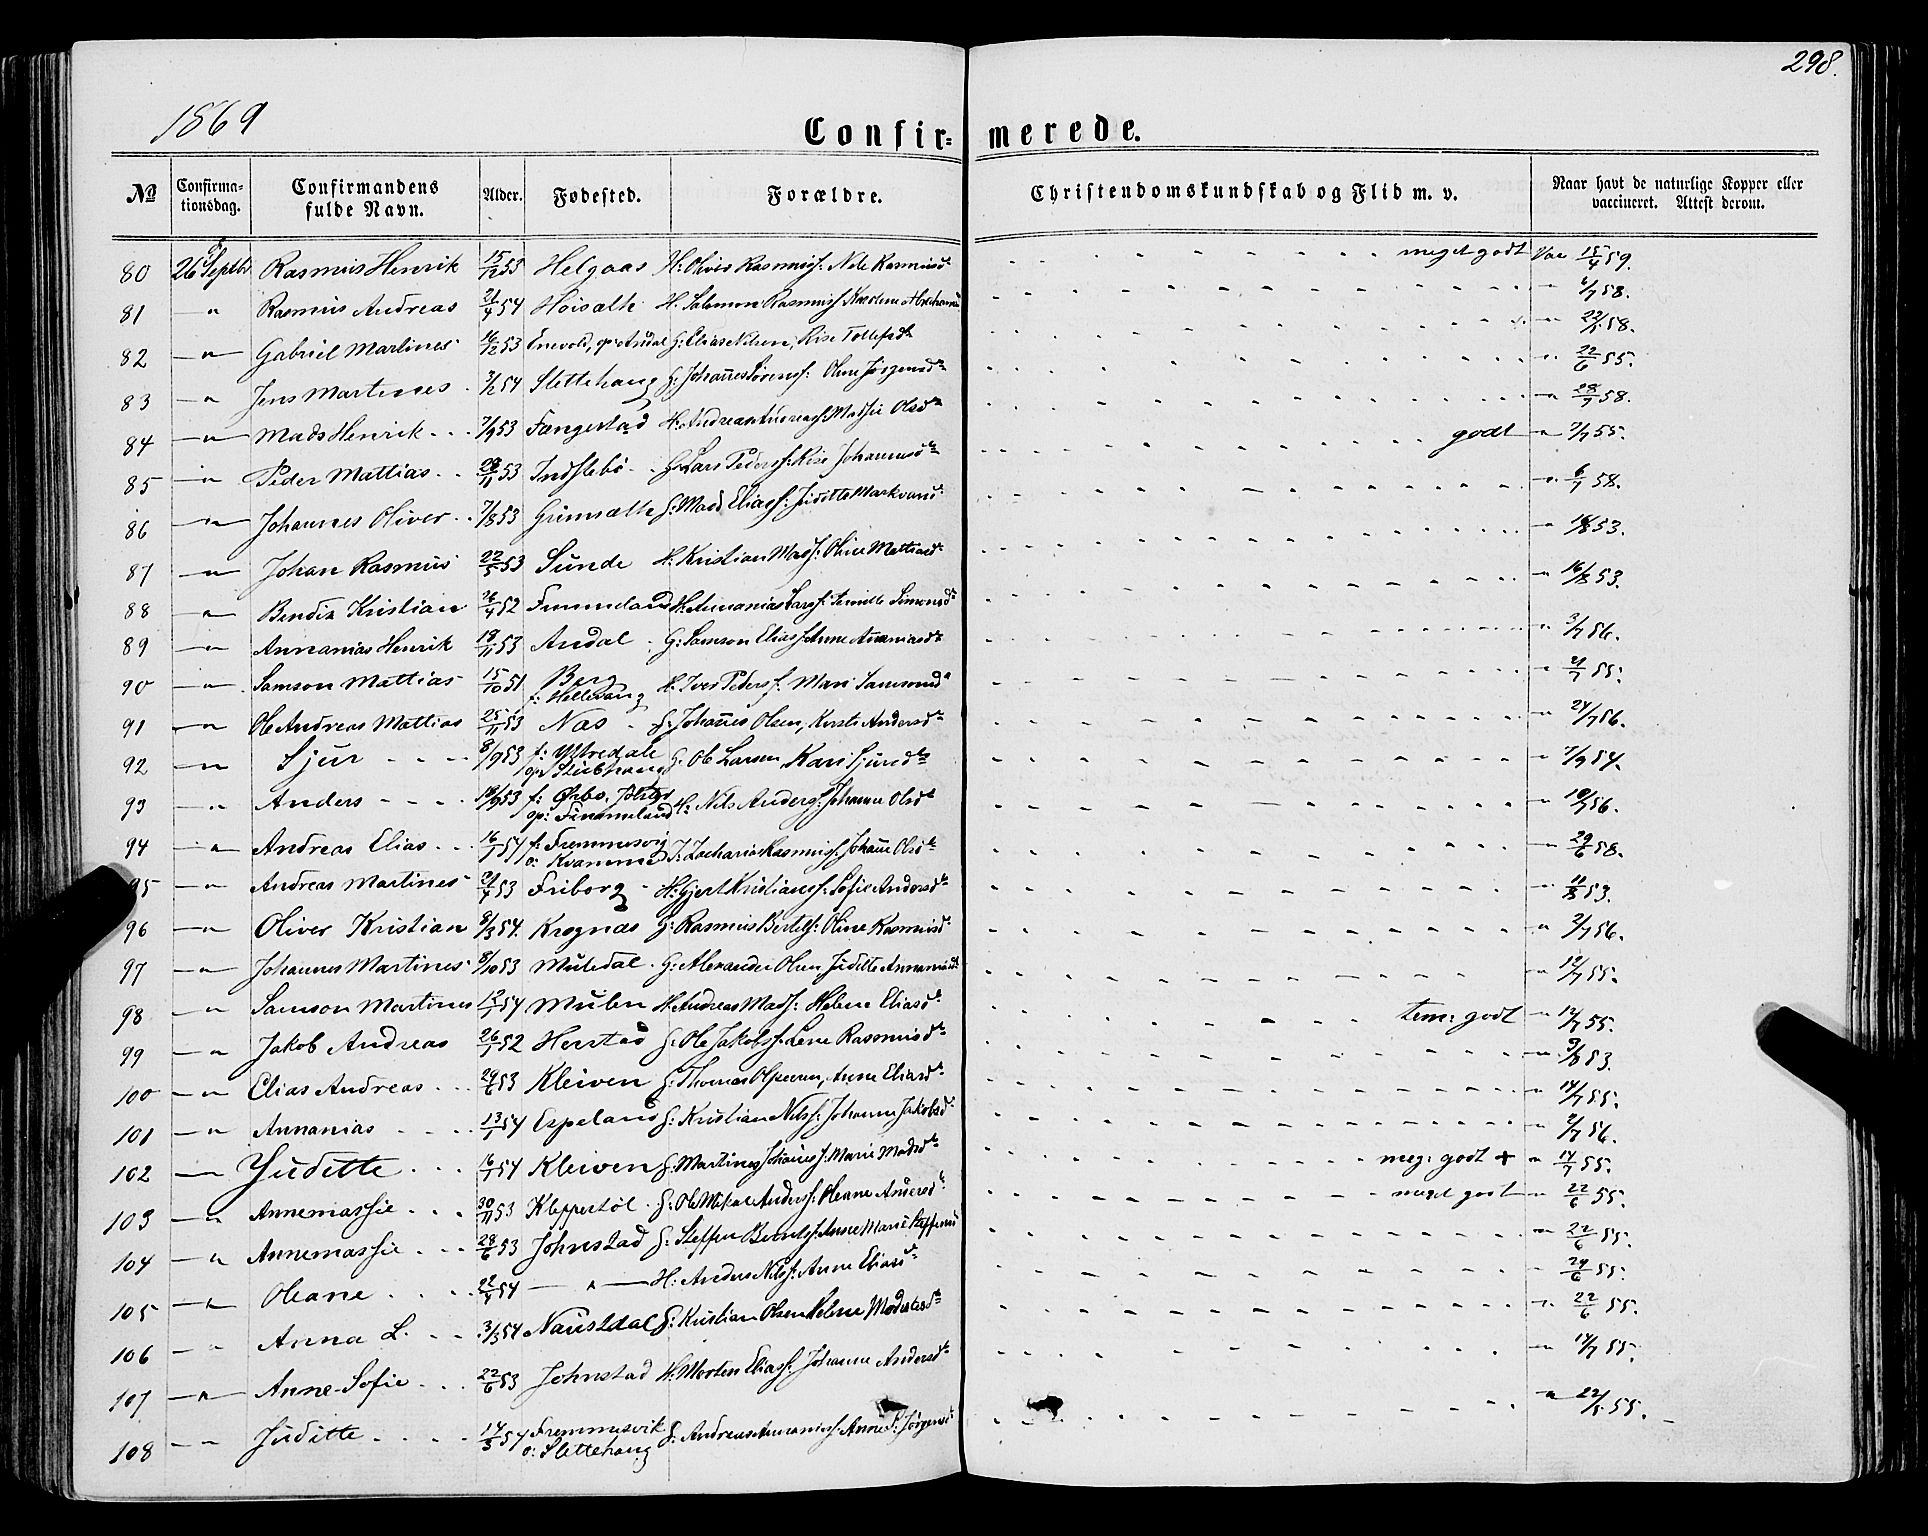 298.
1869
Confir= merede.
No Confirma-tionsdag. Confirmandens fulde Navn. Alder. Fødested. Forældre. Christendomskundskab og Flid m. v. Naar havt de naturlige Kopper eller vaccineret. Attest derom.
80 26 Septbr Rasmus Henrik 15/12 53 Helgaas H: Oliver Rasmusf: Nele Rasmusd. meget godt Vac 15/4 59.
81 " Rasmus Andreas 21/4 54 Hoisæth H. Salamon Rasmusf " 58.
82 " Gabriel Martines 16/12 53 G: Elias Nilsen, Kise Tollefsd. " 22/ 58.
83 " Jens Martines 3/12 54 Slettehaug G: Johañes Sørensf: Oline Jørgensd. " 22/6 55.
84 " Mads Henrik 7/9 53 Fængestad H: Andreas Andreasf. Matsie Olsd. " 28/7 58.
85 " Peder Mattias 28/11 53 Indslebø G: Lars Pedersf: Kise Johannesd. godt " 7/7 55.
86 " Johannes Oliver 7/8 53 Grimsæth G: Mads Eliasf: Juditte Markusd. " 6/7 58.
87 " Johan Rasmus 22/5 53 Sunde H: Kristian Madsf: Oline Mattiasd. " 18/8 53.
88 " Bendix Kristian 26/4 52 H: Annanias Larsf: Pernille Simonsd. " 16/8 53.
89 " Annanias Henrik 18/11 53 Andal G: Samson Eliasf Anne Ananiasd. " 3/7 56.
90 " Samson Mattias 15/10 51 Berg f: Hellevang H: Iver Pedersf. Mari Samsond. " 21/7 55.
91 " Ole Andreas Mattias 25/11 53 Nas G: Johañes Olsen, Kirsti Andersd. " 24/7 56.
92 " Sjur 8/9 53 f: Ystredale op: Stubhaug G: Ole Larsen, Kari Sjursd. " 7/9 54.
93 " Anders 18/9 53 f: Ørbo. Jølster op: Finnmeland H: Nils Andersf: Johanne Olsd. " 10/7 56.
94 " Andreas Elias 16/1 54 f: Fremmesvig o: Kvamme J: Zacharias Rasmusf. Johañe Olsd. " 29/6 58.
95 " Andreas Martines 21/7 53 Friborg H: Gjert Kristiansf: Sofie Andersd. " 11/8 53.
96 " Oliver Kristian 8/3 54. Krognæs G: Rasmus Bertelsf: Oline Rasmusd. " 2/7 56.
97 " Johannes Martines 8/10 53 Muledal G: Alexander Olsen Juditte Annaniasd. " 12/7 55.
98 " Samson Martines 12/1 54 Mulen H: Andreas Madsf: Helene Eliasd. " 14/7 55.
99 " Jakob Andreas 26/1 52 Herstad G: Ole Jakobsf. Lene Rasmusd. tem: godt " 9/8 53.
100 " Elias Andreas 29/6 53 Kleiven G: Thomas Anne Eliasd. " 14/7 55.
101 " Annanias 13/1 54 Espeland G: Kristian Nilsf: Johanne Jakobsd. " 2/7 56.
102 " Juditte 16/1 54 Kleiven G: Martines Johañesf. Marie Madsd. meg: godt + " 14/7 55.
103 " Annemassie 30/11 53 Kleppestøl G: Ole Mikal Andersf: Oleane Andersd. meget godt " 22/6 55.
104 " Annemassie 28/6 53 Johnstad G: Steffen Berntsf. Anne Marie " 22/6 55.
105 " Oleane 22/1 54 " H: Anders Nilsf. Anne Eliasd. " 29/6 55.
106 " Anna L. 3/3 54 Naustdal G: Kristian Olsen Helene Modestesd. " 22/6 55.
107 " Anne Sofie 22/6 53 Johnstad H: Morten Eliasf. Johanne Andersd. " 14/7 55.
108 " Juditte 14/3 54 Fremmesvik o: Slettehaug G: Andreas Annaniasf. Anne P: Jørgensd. " 22/6 55.